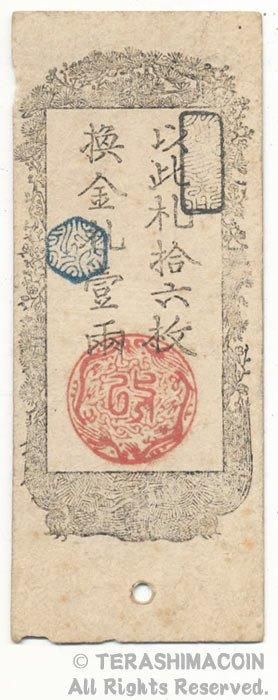 以此札拾六枚
換金札壹兩
© TERASHIMACOIN
All Rights Reserved.